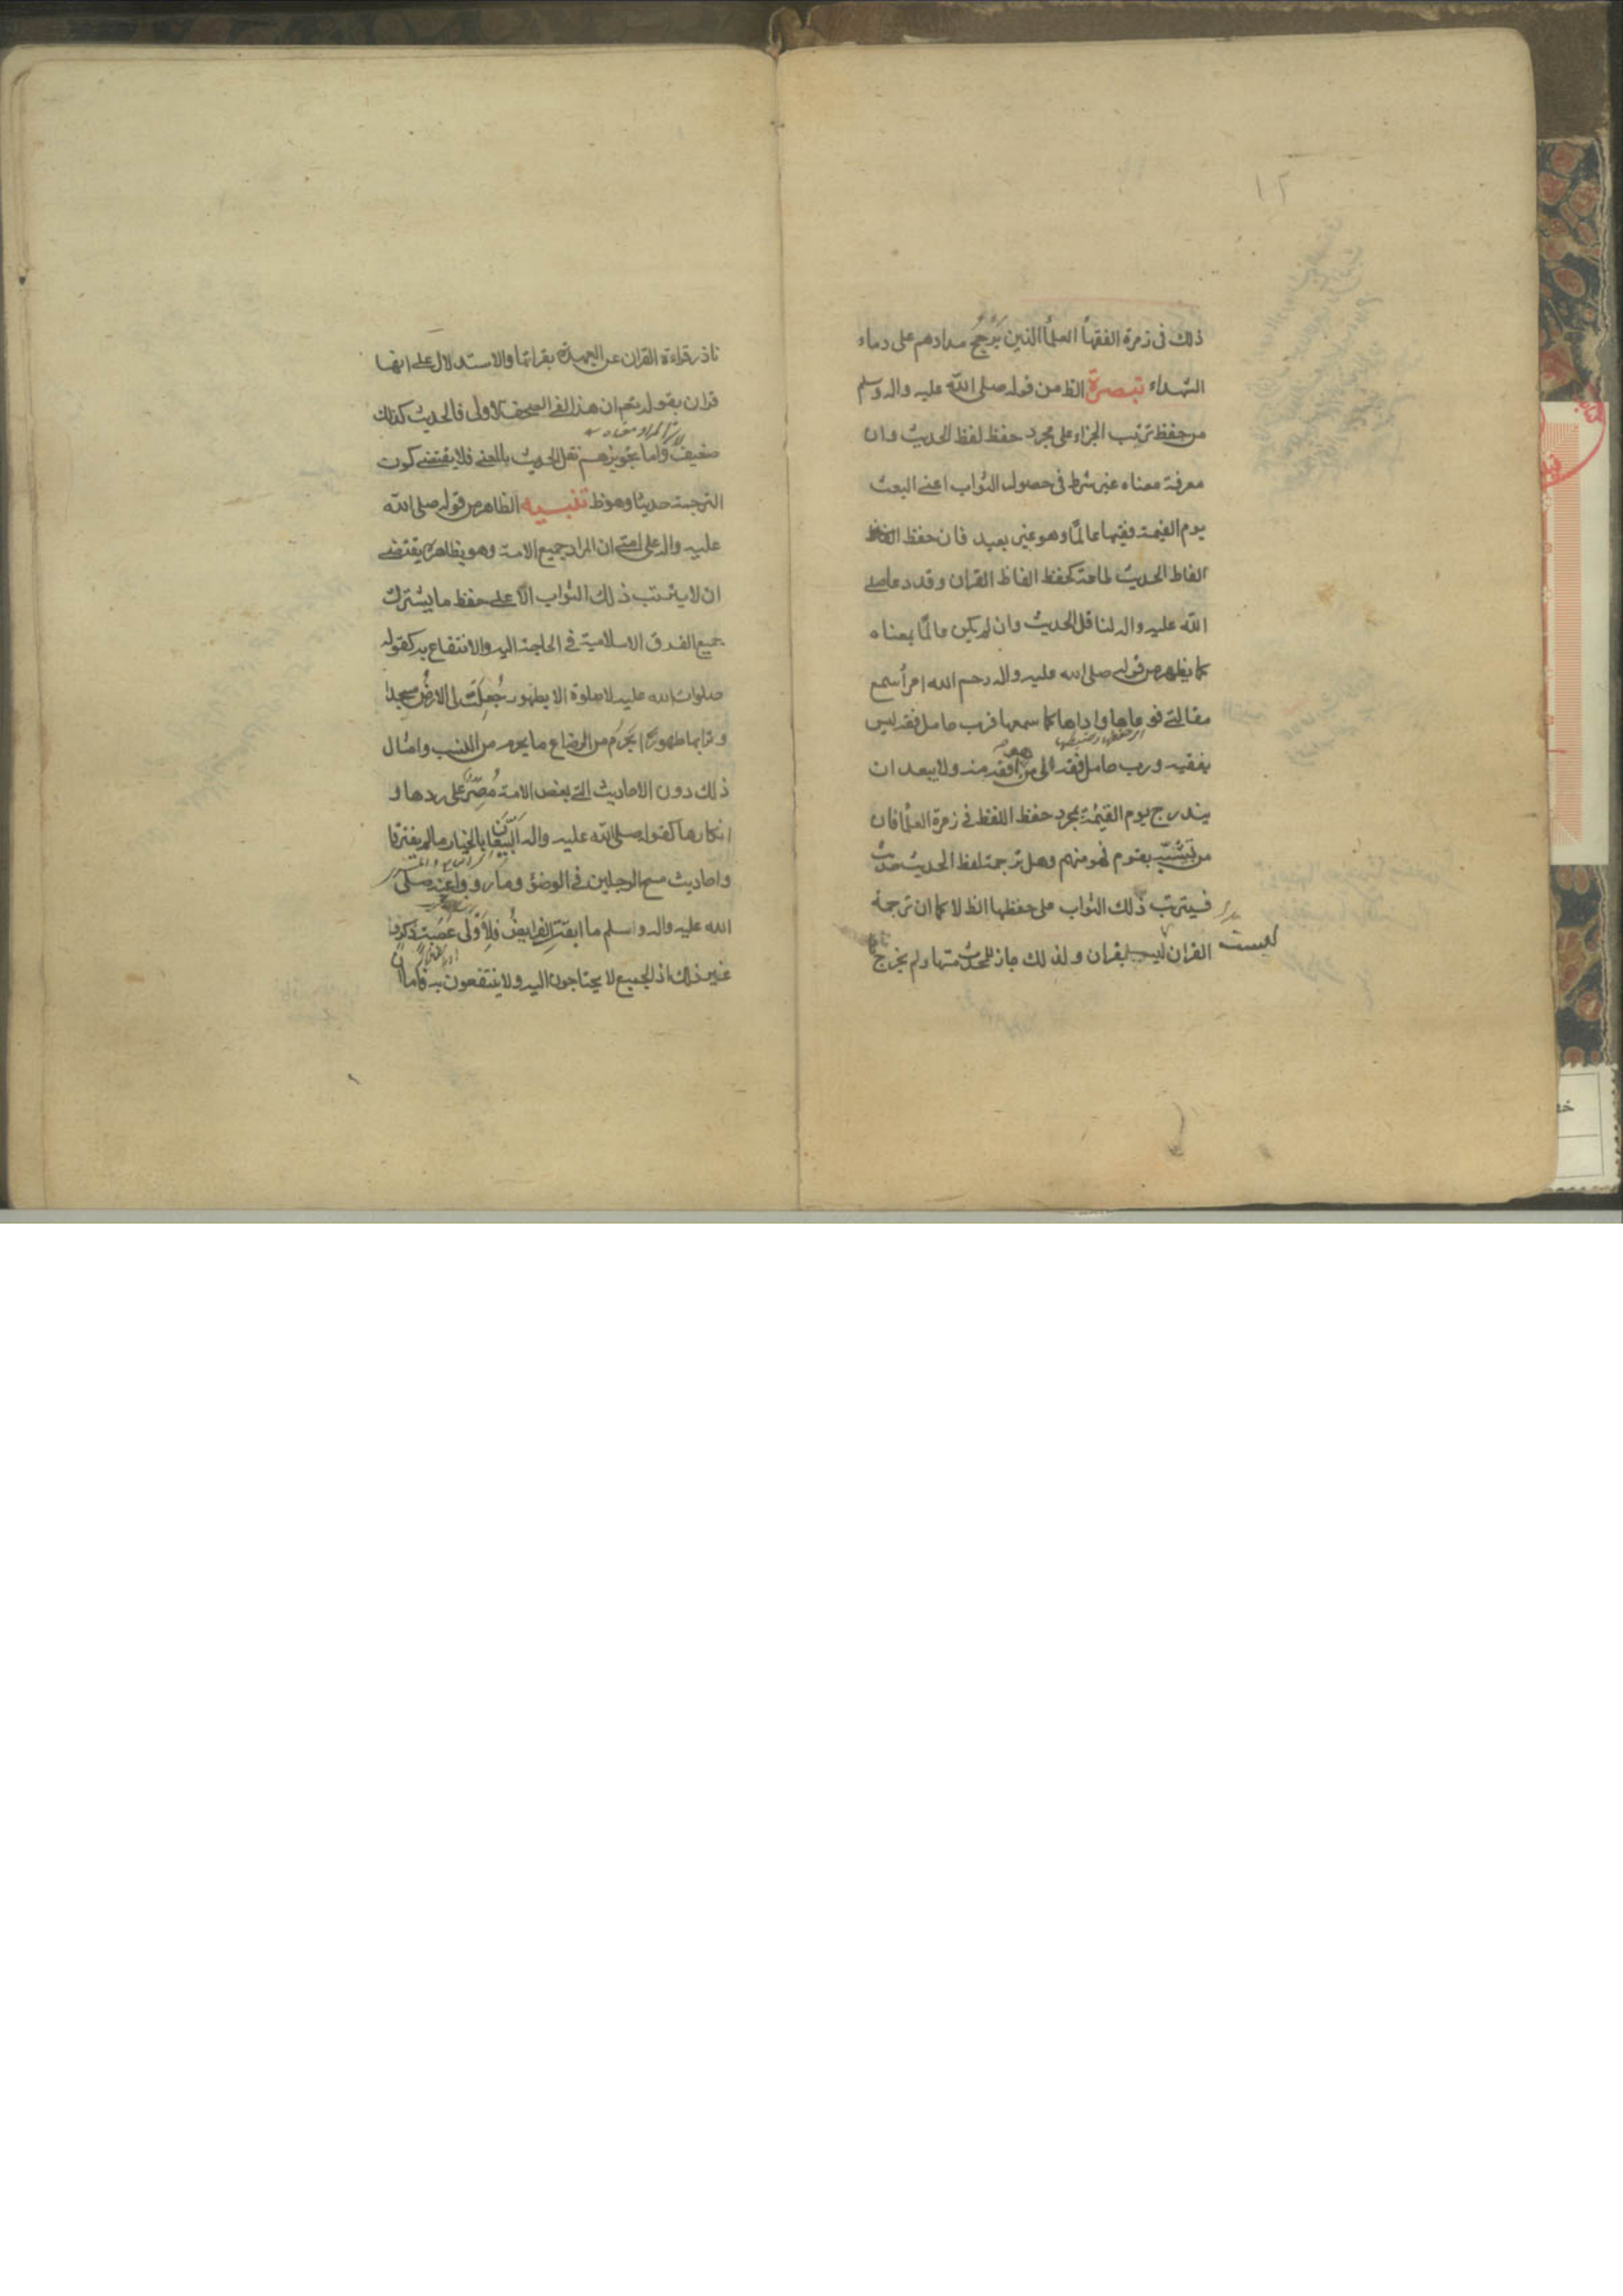 ١٢
ذلك فى زمرة الفقهاۤ العلماۤ الذين يرجح مدادهم على دماء
الشهداء تبصرة الظ من قوله صلى الله عليه واله وسلم
من حفظ ترتب الجزاء على مجرد حفظ لفظ الحديث وان
معرفة معناه غير شرط فى حصول الثواب اعنى البعث
يوم القيمة فقيها عالمًا وهو غير بعيد فان حفظ
الفاظ الحديث طاعة كحفظ الفاظ القران وقد دعا صلى
الله عليه واله لناقل الحديث وان لم يكن عالمًا بمعناه
كما يظهر من قوله صلى الله عليه واله رحم الله امرأ سمع
مقالتى فوعاها واداها كما سمعها فرب حامل فقه ليس
اى حفظها وضبطها
بفقيه ورب حامل فقه الى من هو افقه منه ولا يبعد ان
يندرج يوم القيمة بمجرد حفظ اللفظ فى زمرة العلماۤ فان
من تشبّه بقوم فهو منهم وهل ترجمة لفظ الحديث حديث
فيترتب ذلك الثواب على حفظها الظ لا كما ان ترجمة
القران ليس بقران ولذلك جاز للمحدث مسها ولم يخرج
ليست
ناذر قراءة القران عن العهدة بقرائتها والاستدلال على انها
قران بقوله تعم ان هذا لفى الصحف الاولى فالحديث كذلك
ضعيف واما تجويزهم نقل الحديث بالمعنى فلا يقتضى كون
الترجمة حديثا وهو ظ تنبيه الظاهر من قوله صلى الله
عليه واله على امتى ان المراد جميع الامة وهو بظاهره يقتضى
ان لا يترتب ذلك الثواب الّا على حفظ ما يشترك
جميع الفرق الاسلامية فى الحاجة اليه والانتفاع به كقوله
صلوات الله عليه لا صلوة الا بطهور جُعِلَت لى الارضُ مسجدا
وترابها طهورا يحرم من الرضاع ما يحرم من النسب وامثال
ذلك دون الاحاديث التى بعض الامة مُصِرّ على ردها و
انكارها كقوله صلى الله عليه واله البيّعان بالخيار مالم يفترقا
واحاديث مسح الرجلين فى الوضؤ وما رووا عنه صلى
الله عليه واله واسلم ما ابقت الفرايضُ فلاَوْلى عَصَبة ذكر و
غير ذلك اذ الجميع لا يحتاجون اليه ولا ينتفعون به فاما ان